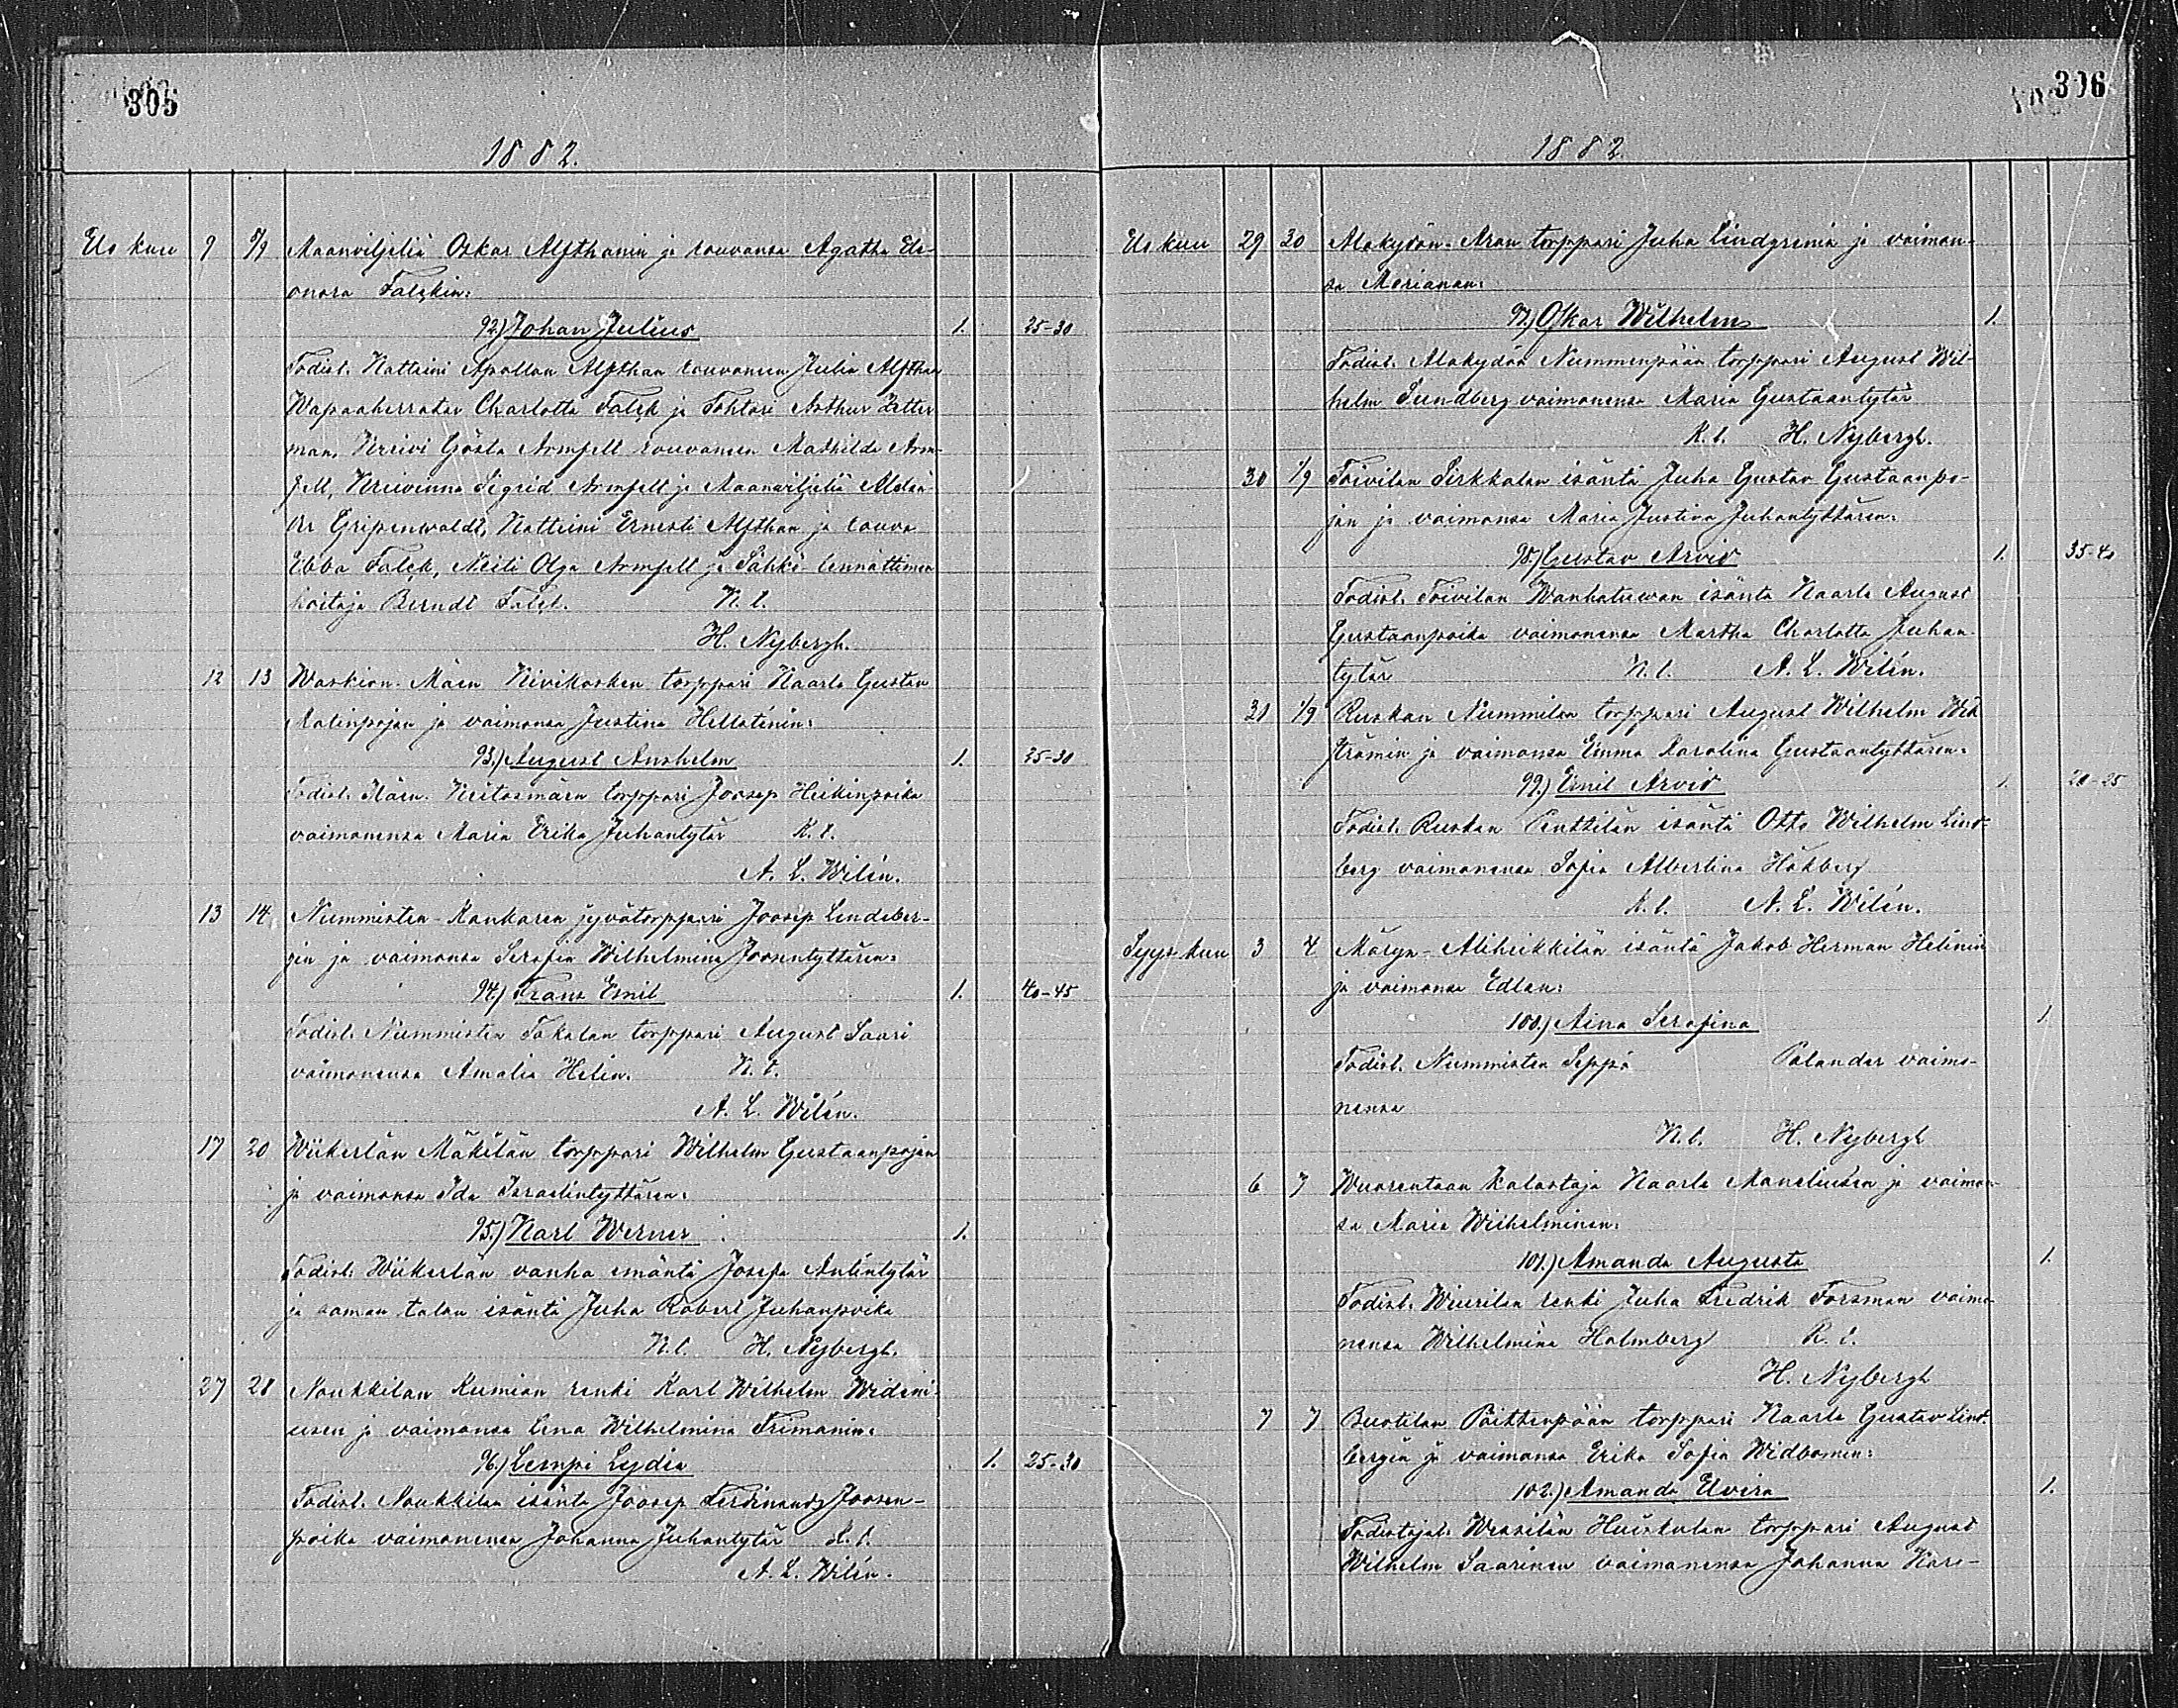 305
1882.
Elo kuu 9 9/9 Maanviljeliä Oskar Alfthanin ja rouvansa Agatha Ele-
onora Falckin:
92.) Johan Julius 1. 25-30
Todist. Katteini Apollon Alfthan rouvansa Julia Alfthan
Wapaaherratar Charlotta Falck ja Tohtori Arthur Zetter
man, Kreivi Gösta Armfelt rouvansa Mathilda Arm-
felt, Kreivinna Sigrid Armfelt ja Maanviljeliä
Gripenwaldt, Katteini Ernesti Alfthan ja rouva
Ebba Falck, Neiti Olga Armfelt ja Sähkö lennättimen
hoitaja Berndt Falck. K. t.
H. Nybergh.
12 13 Waskion Mäen Kivikosken torppari Kaarlo Gustav
Matinpojan ja vaimonsa Justina Hellstenin:
93.) August Anshelm 1. 25-30
Todist. torppari Joosep Heikinpoika
vaimonensa Maria Erika Juhantytär K. t.
A. L. Wilén.
13 14 Nummisten-Kankaren jyvätorppari Joosep Lindeber-
gin ja vaimonsa Serafia Wilhelmina Joosentyttären:
94.) Frans Emil 1. 40-45
Todist. Nummisten Takalan torppari August Saari
vaimonensa Amalia Helin. K. t.
A. L. Wilén.
17 20 Wiikerlän Mäkilän torppari Wilhelm Gustaanpojan
ja vaimonsa Ida Israelintyttären:
95.) Karl Werner 1.
Todist. Wiikerlän vanha emäntä Josefa Antintytär
ja saman talon isäntä Juha Robert Juhanpoika
K. t. H. Nybergh.
27 28 Noukkilan Kumion renki Karl Wilhelm Wideni-
uksen ja vaimonsa Lena Wilhelmina Frimanin:
96.) Lempi Lydia 1. 25-30
Todist. Noukkilan isäntä Joosep Ferdinand Joosen-
poika vaimonensa Johanna Juhantytär K. t.
A. L. Wilén.
306
1882.
Elo kuu 29 30 Alakydön-Aron torppari Juha Lindgrenin ja vaimon-
sa Marianan:
97.) Oskar Wilhelm 1.
Todist. Alakydön Nummenpään torppari August Wil-
helm Sundberg vaimonensa Maria Gustaantytär
K. t. H. Nybergh.
30 1/9 Toivilan Sirkkalan isäntä Juha Gustav Gustaanpo-
jan ja vaimonsa Maria Justina Juhantyttären:
98.) Gustav Arvid 1. 35-40
Todist. Toivilan Wanhatuwan isäntä Kaarlo August
Gustaanpoika vaimonensa Martha Charlotta Juhan-
tytär K. t. A. L. Wilén.
31 1/9 Ruskan Nummilan torppari August Wilhelm Wik
strömin ja vaimonsa Emma Karolina Gustaantyttären:
99.) Emil Arvid 1. 20-25
Todist. Ruskan Penttilän isäntä Otto Wilhelm Lind-
berg vaimonensa Sofia Albertina Hökberg
K. t. A. L. Wilén.
Syys kuu 3 4 Märyn-Aliheikkilän isäntä Jakob Herman Helinin
ja vaimonsa Edlan:
100.) Aina Serafina 1.
Todist. Nummisten Seppä Palander vaimo-
nensa
K. t. H. Nybergh
6 7 Wuorentaan kalastaja Kaarlo Maneliuksen ja vaimon-
sa Maria Wilhelminan:
101.) Amanda Augusta 1.
Todist. Wiurilan renki Juha Fredrik Forsman vaimo-
nensa Wilhelmina Holmberg K. t.
H. Nybergh
7 7 torppari Kaarlo Gustav Lind-
bergin ja vaimonsa Erika Sofia Widbomin:
102.) Amanda Elvira 1.
Todistajat. Huiskulan torppari August
Wilhelm Saarinen vaimonensa Johanna Karo-